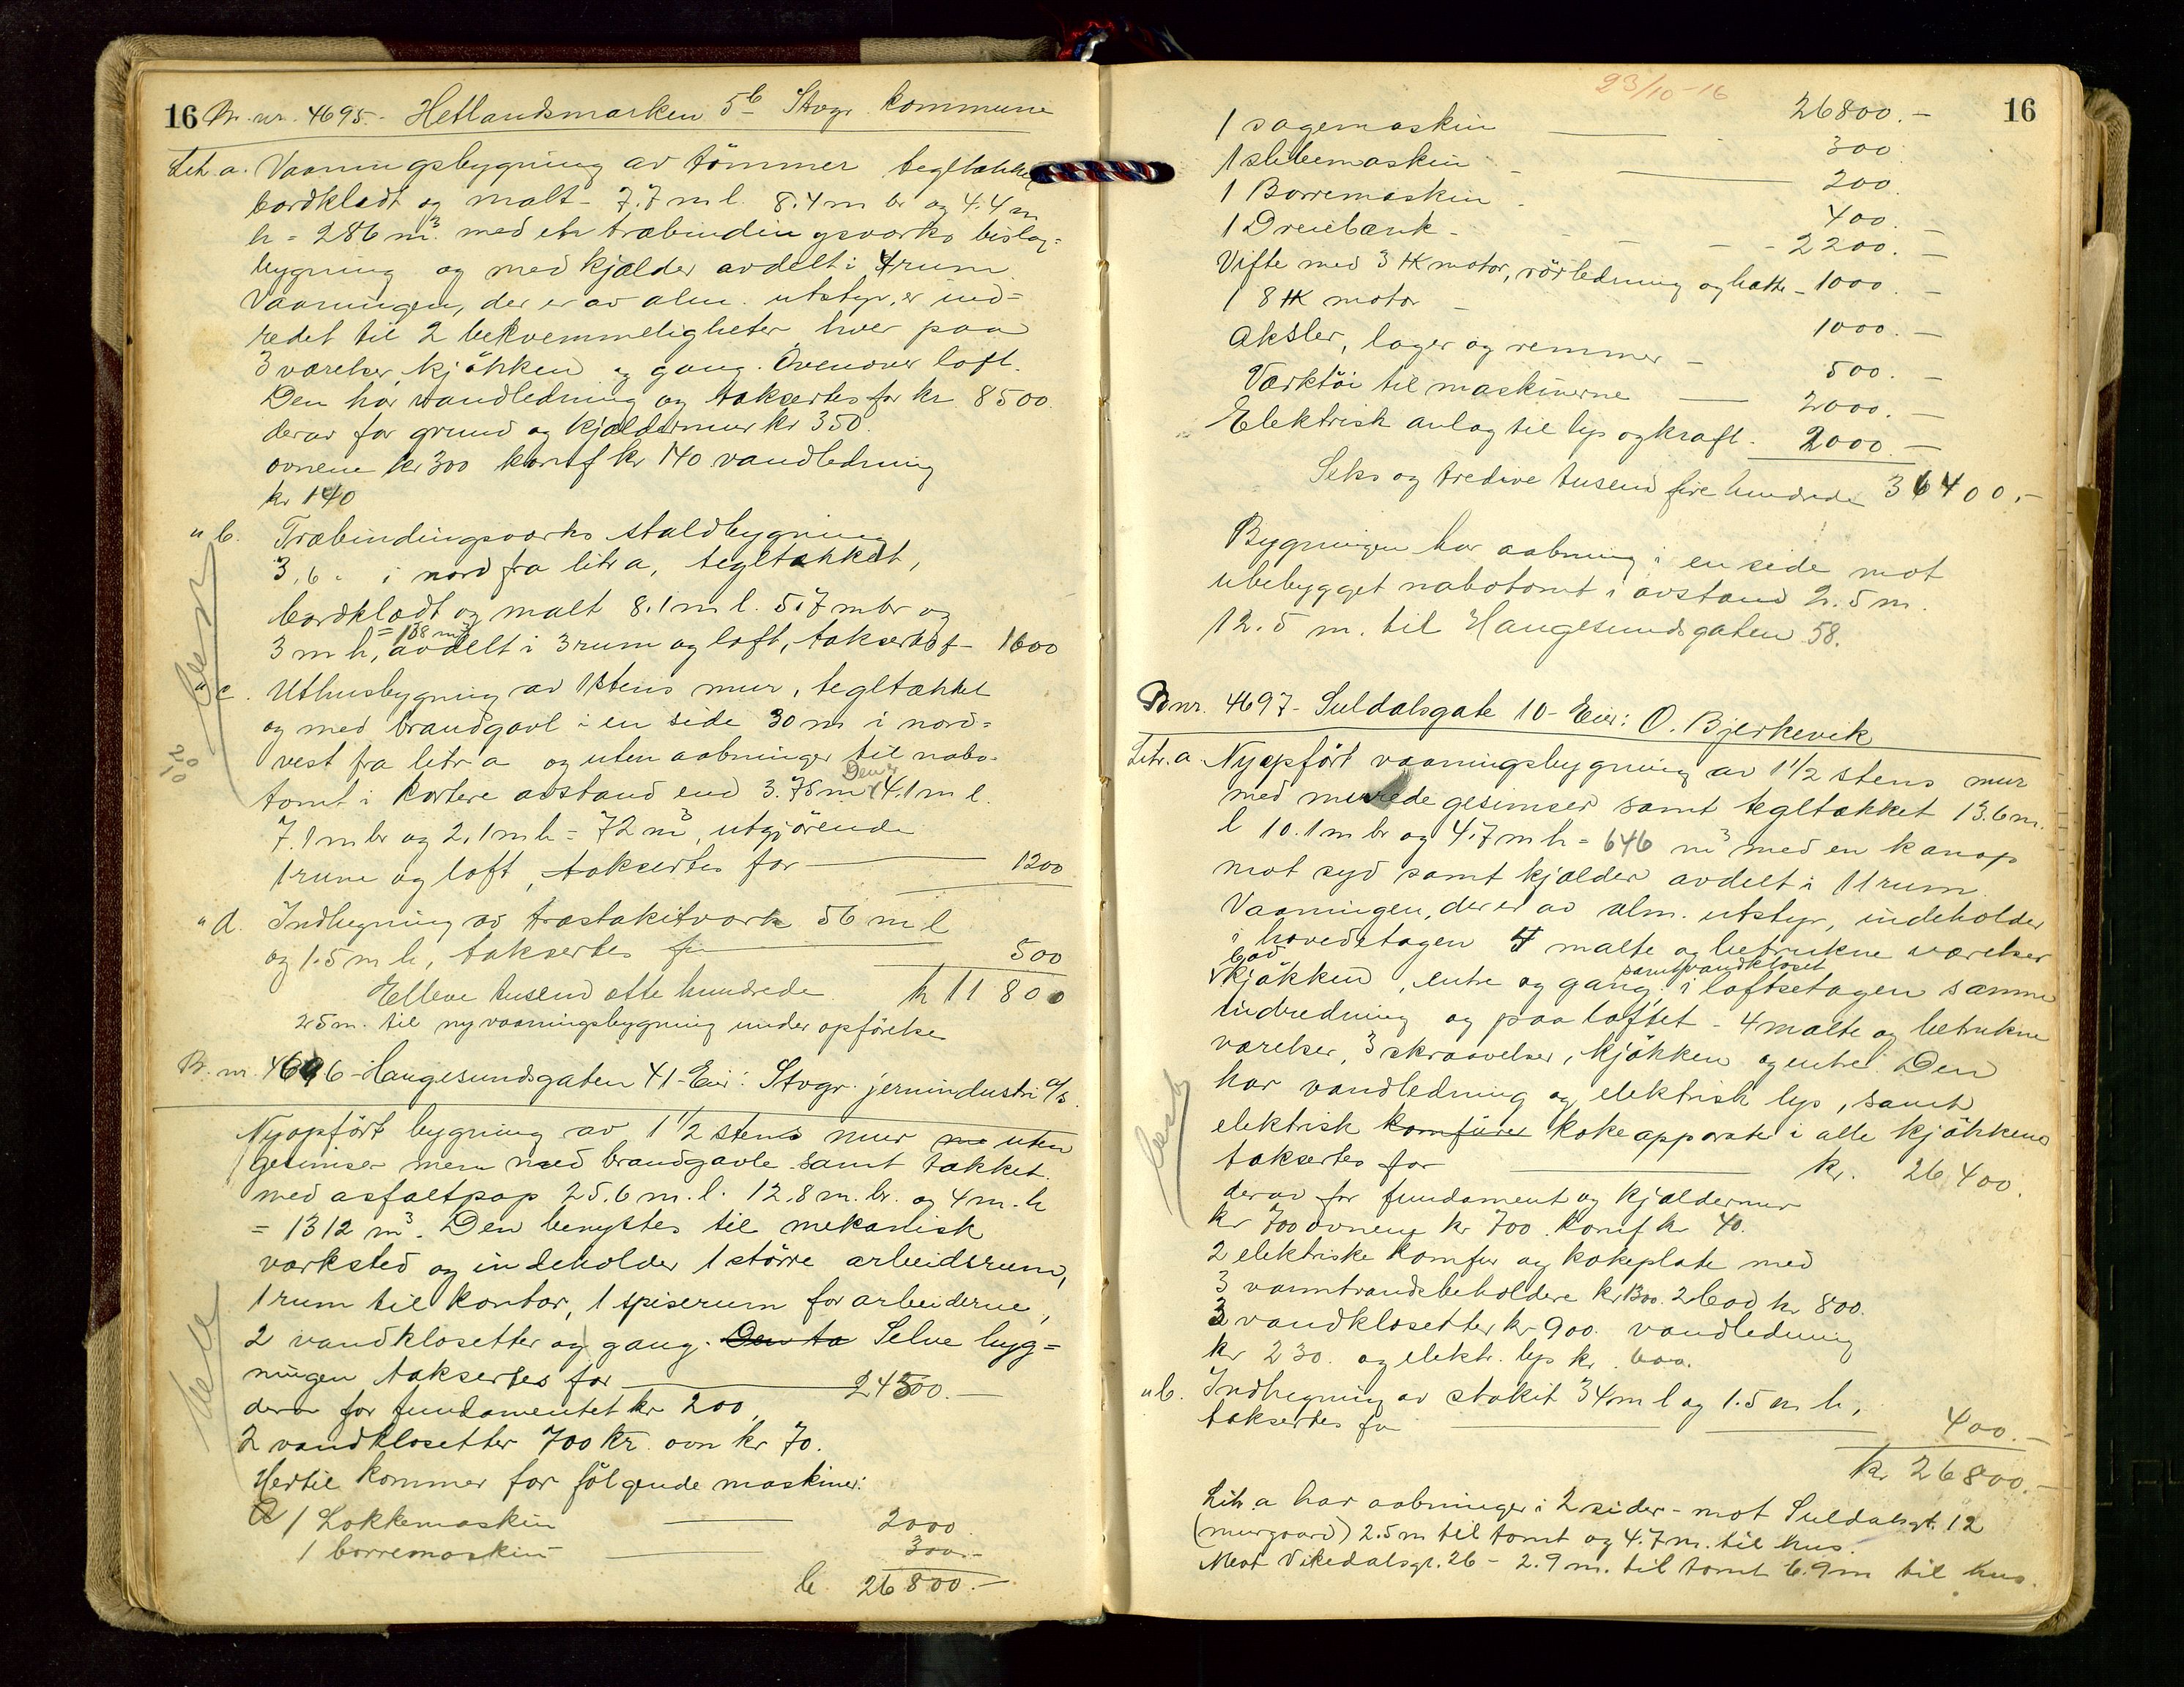 16 Br. nr. 4695 - Hetlandsmarken 5b Stvgr. kommune
Litr. a. Vaaningsbygning av tömmer tegltækket
bordklædt og malt - 7.7 m l. 8.4 m br og 4.4 m
h = 286 m³ med etr træbindingsverks bislag=
bygning og med kjælder avdelt i 4 rum.
Vaaningen, der er av alm. utstyr, er ind=
redet til 2 bekvemmeligheter hver paa
3 værelser, kjökken og gang. Ovenover loft.
Den har vandledning og taksertes for kr 8500.
derav for grund og kjældermur kr 350.
ovnene kr 300 komf kr 140 vandledning
kr 140
" b. Træbindingsverks staldbygning
3,6 " i nord fra litr a, tegltækket,
bordklædt og malt 8.1 m l. 5.7 m br og
= 138 m³
3 m h, avdelt i 3 rum og loft, taksert f - 1600
" c. Uthusbygning av 1 stens mur, tegltækket
og med brandgavl i en side 30 m i nord=
vest fra litr a og uten aabninger til nabo-
tomt i kortere avstand end 3.75 m. Den er 4.1 m l.
7.1 m br og 2.1 m h = 72 m³, utgjörende
1 rum og loft, taksertes for 1200
" d. Indhegning av træstakitverk 56 m l
og 1.5 m h, taksertes for 500
Elleve tusend otte hundrede kr 11 800
2.5 m. til ny vaaningsbygning under opförelse
Br. nr. 4696 - Haugesundsgaten 41 - Eier: Stvgr. jernindustri A/S.
Nyopfört bygning av 1 1/2 stens mur me uten
gesimser men med brandgavle samt tækket
med asfaltpap 25.6 m. l. 12.8 m. br. og 4 m. h
= 1312 m³. Den benyttes til mekanisk
verksted og indeholder 1 större arbeidsrum,
1 rum til kontor, 1 spiserum for arbeiderne,
2 vandklosetter og gang. Den ta Selve byg=
ningen taksertes for 24500.-
derav for fundamentet kr 200,
2 vandklosetter 700 kr. ovn kr 70.
Hertil kommer for fölgende maskiner:
1 Lokkemaskin 2000.
1 borremaskin 300.-
kr 26800.-
23/10-16
16
26800.-
1 sagemaskin 300
1 slibemaskin 200.
1 Borremaskin 400.-
1 Dreiebænk - 2200.-
Vifte med 3 HK motor, rörledning og hætte - 1000.-
1 8 HK motor 1000.-
Aksler, lager og remmer - 500.-
Verktöi til maskinerne 2000.-
Elektrisk anlæg til lys og kraft - 2000.-
Seks og tredive tusend fire hundrede 36400.-
Bygningen har aabning i en side mot
ubebygget nabotomt i avstand 2.5 m.
12.5 m. til Haugesundsgaten 58.
Br nr. 4697 - Suldalsgate 10 - Eier: O. Bjerkevik
Litr. a. Nyopfört vaaningsbygning av 1 1/2 stens mur
med murede gesimser samt tegltækket 13.6 m.
l 10.1 m br og 4.7 m h = 646 m³ med en kanap
mot syd samt kjælder avdelt i 11 rum.
Vaaningen, der er av alm. utstyr, indeholder
i hovedetagen 4 malte og betrukne værelser
bad samt vandkloset
kjökken, entre og gang, i loftsetagen samme
indredning og paa loftet - 4 malte og betrukne
værelser, 3 skraavelser, kjökken og entre. Den
har vandledning og elektrisk lys, samt
elektrisk komfürer kokeapparater i alle kjökkener
taksertes for kr. 26,400.
derav for fundament og kjældermur
kr 700 ovnene kr 700. komf kr 40.
2 elektriske komfur og kokeplate med
3 varmtvandsbeholdere kr 1300. 2 bad kr 800.
3 vandklosetter kr 900. vandledning
kr 230. og elektr. lys kr. 600.
" b. Indhegning av stakit 34 m l og 1.5 m h,
taksertes for 400.-
kr 26800.-
Litr. a har aabninger i 2 sider - mot Suldalsgt. 12
(murgaard) 2.5 m til tomt og 4.7 m. til hus.
Mot Vikedalsgt. 26 - 2.9 m. til tomt 6.9 m til hus.